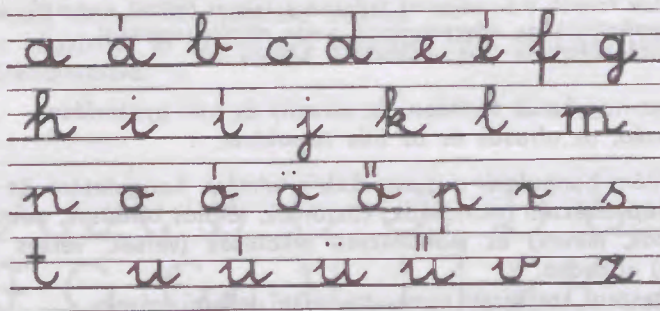 a á b c d e é f g
h i í j k l m
n o ó ö ő p r s
t u ú ü ű v z